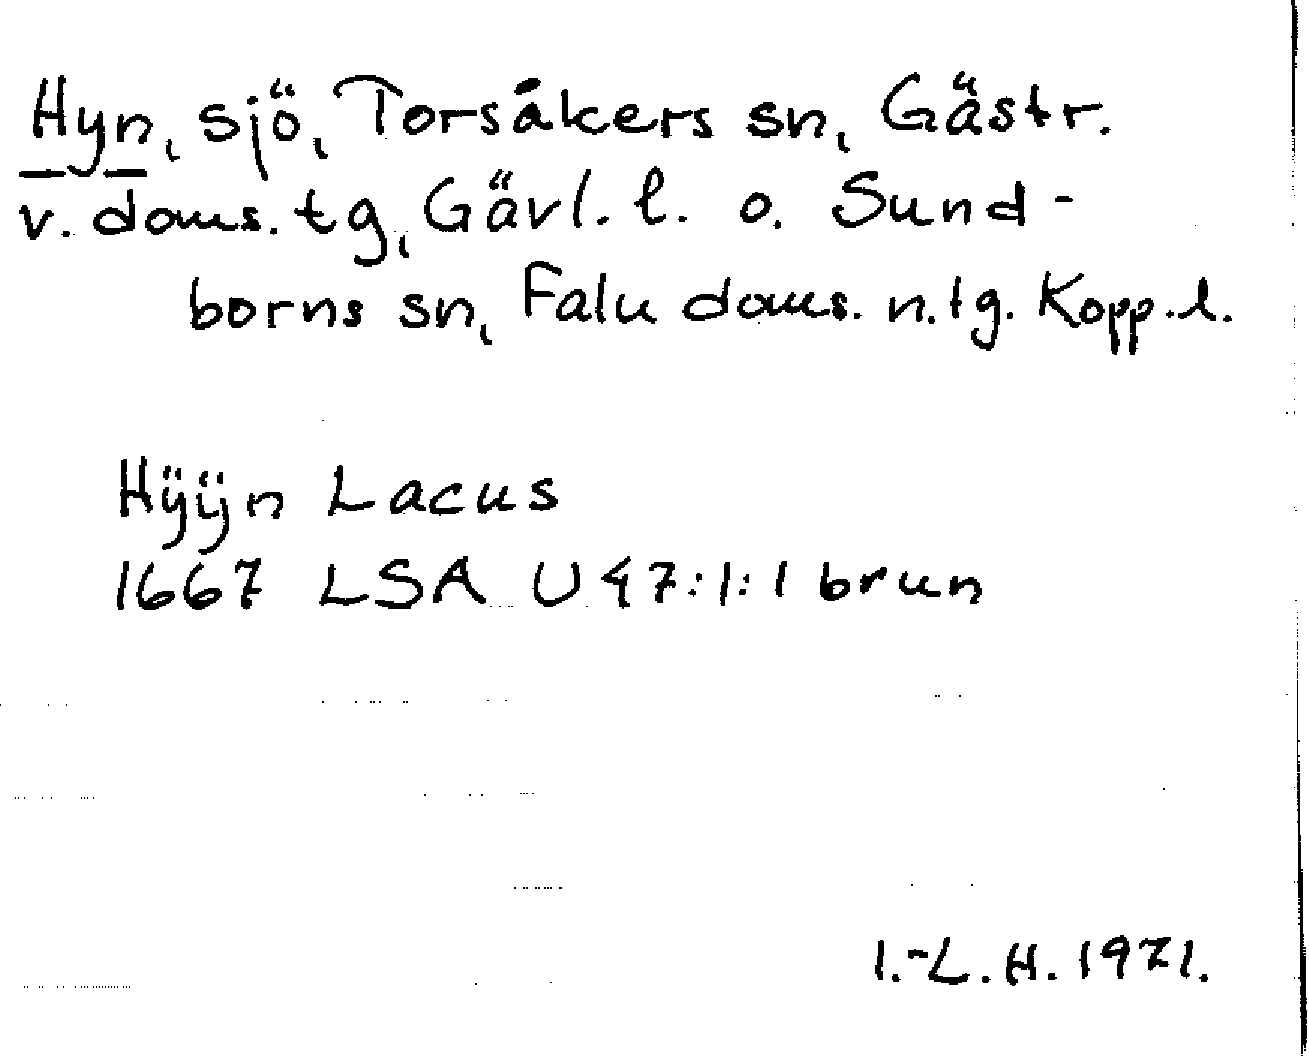 Hyn, sjö, Torsåkers sn, Gästr.
v. doms. tg, Gävl. l. o. Sund-
borns sn, Falu doms. n. tg. Kopp. l.
Hÿÿn Lacus
1667 LSA U 47:1:1 brun
I.-L. H. 1971.